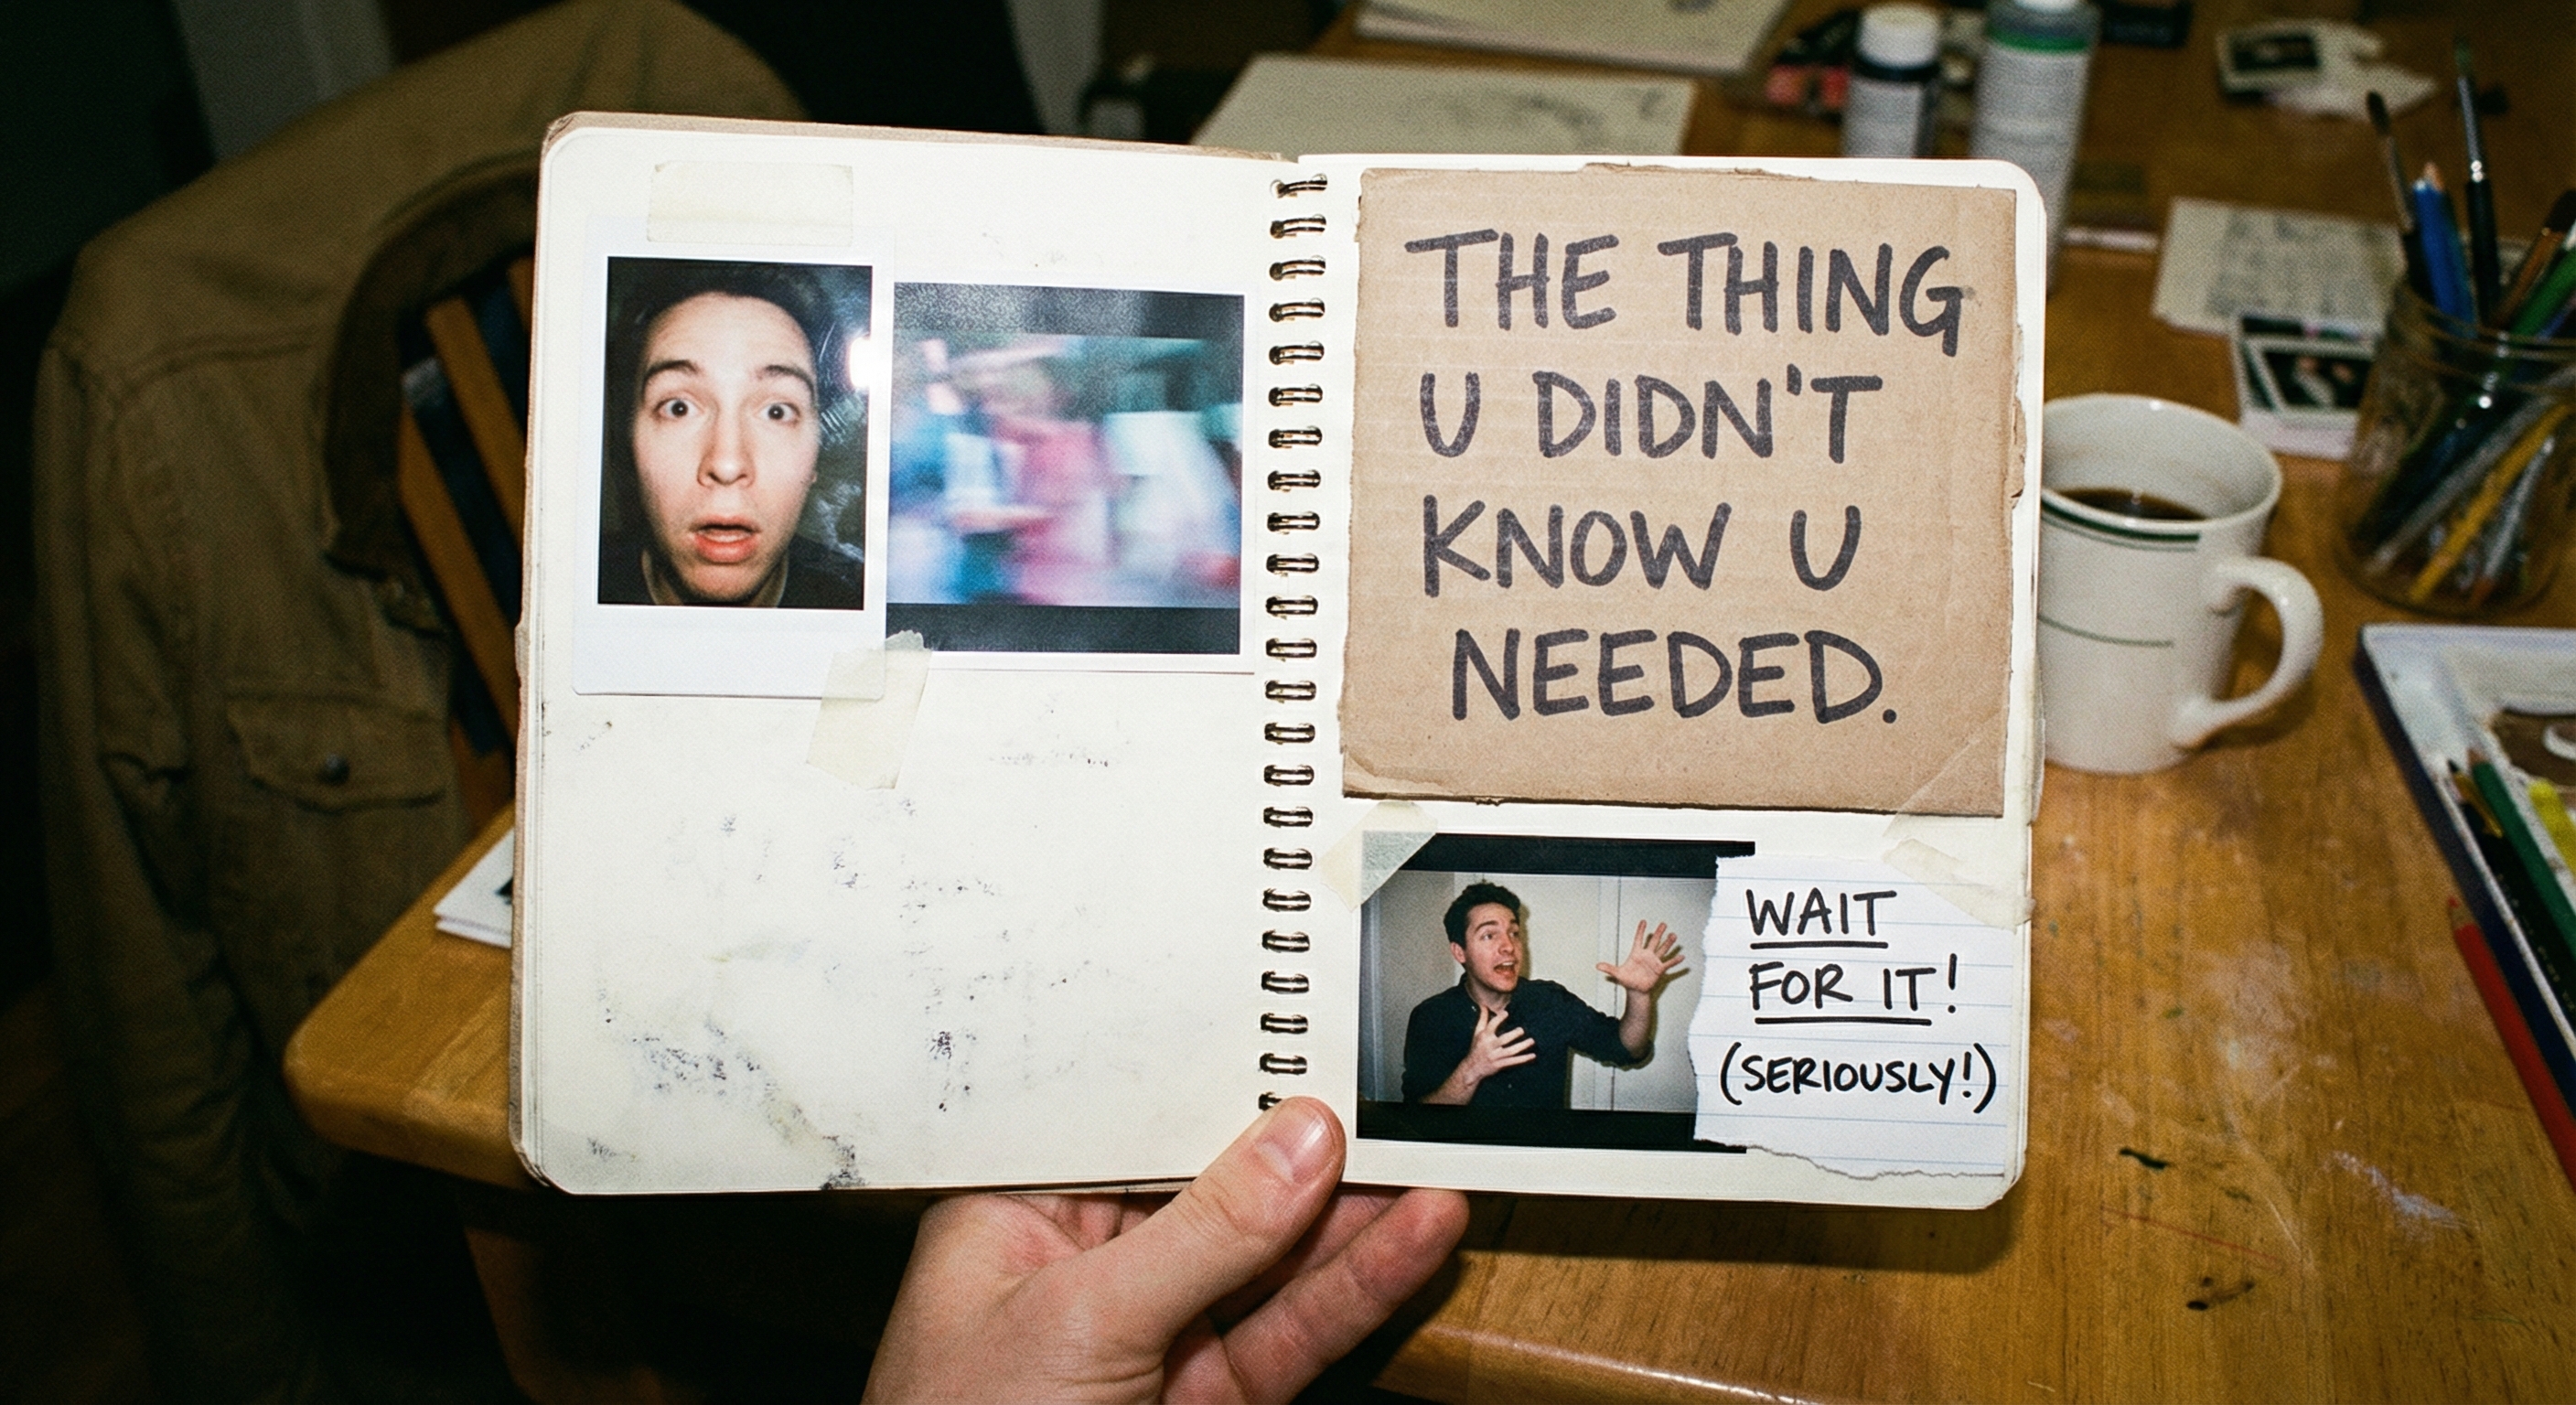 THE THING
U DIDN'T
KNOW U
NEEDED.
WAIT
FOR IT!
(SERIOUSLY!)